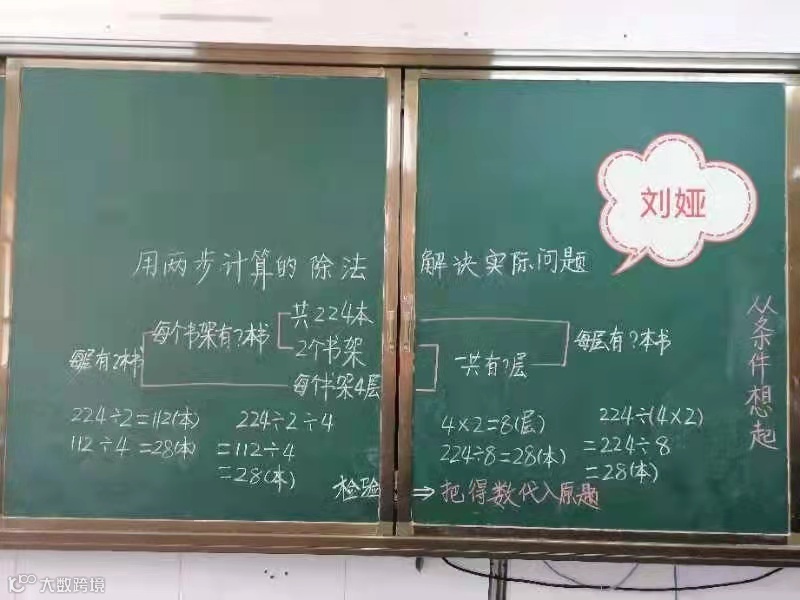 刘娅
用两步计算的除法 解决实际问题
共224本
每个书架有?本书
2个书架
每层有?本书
每个书架4层
一共有?层
每层有?本书
224÷2=112(本)
112÷4=28(本)
224÷2÷4
=112÷4
=28(本)
4×2=8(层)
224÷8=28(本)
224÷(4×2)
=224÷8
=28(本)
检验 ⇒ 把得数代入原题
从条件想起
100 大数跨境